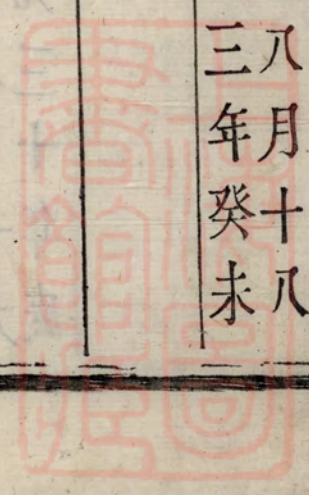 八月十八
三年癸未